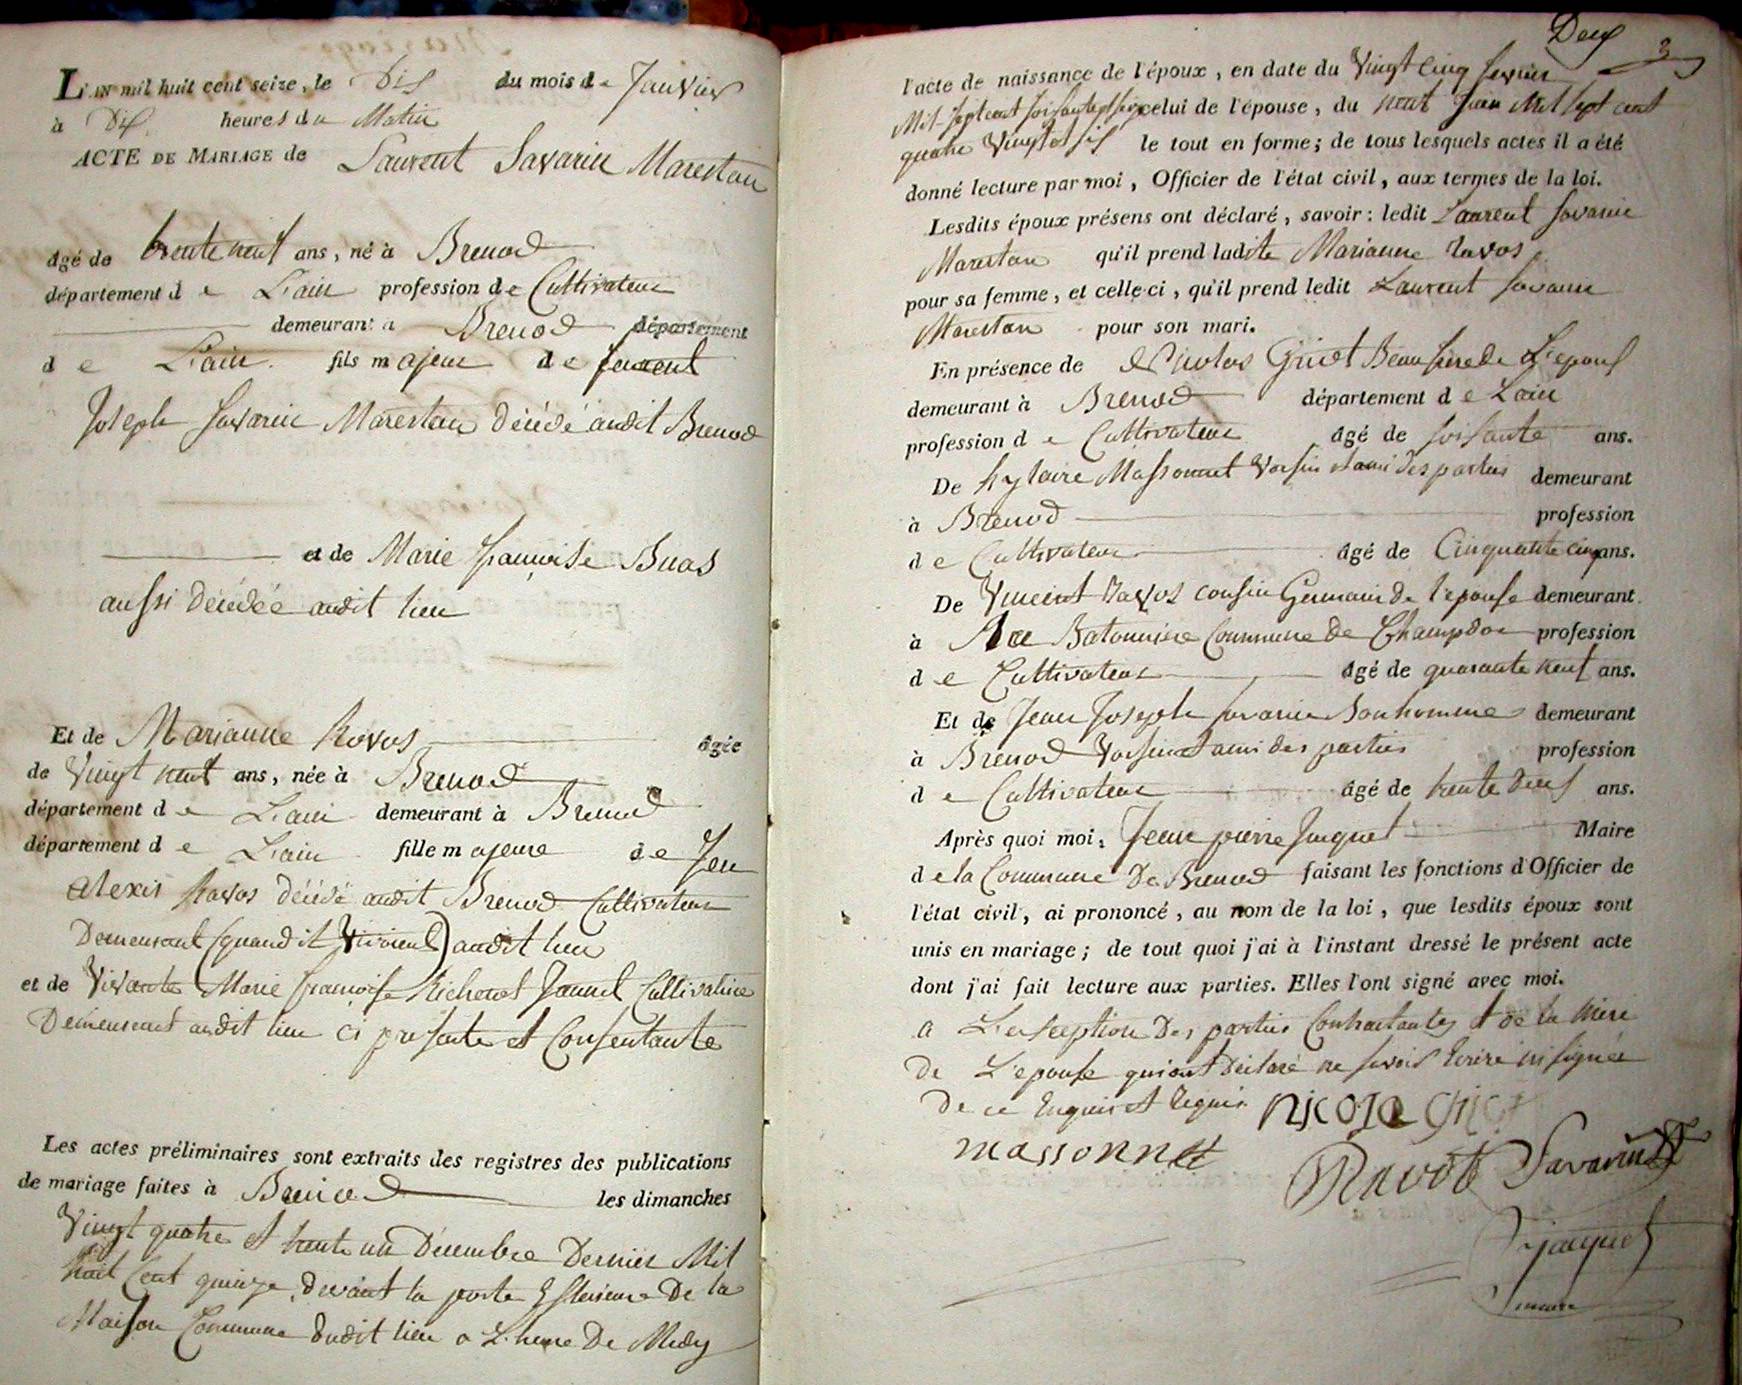 L'an mil huit cent seize, le Dix du mois de Janvier
à Dix heures du Matin
ACTE DE MARIAGE de Laurent Savarin Marestan
âgé de trente neuf ans, né à Brenod
département de L'ain profession de Cultivateur
demeurant à Brenod département
de L'ain fils majeur de
Joseph Savarin Marestan décédé audit Brenod
et de Marie françoise Buas
aussi décédée audit lieu
Et de Marianne Ravos âgée
de Vingt neuf ans, née à Brenod
département de L'ain demeurant à Brenod
département de L'ain fille majeure de Jean
alexis Ravos décédé audit Brenod Cultivateur
Demeurant (quand il Vivoient) audit lieu
et de Vivante Marie françoise Richerot Jannet Cultivatrice
Demeurant audit lieu ci presente et Consentante
Les actes préliminaires sont extraits des registres des publications
de mariage faites à Brenod les dimanches
Vingt quatre et trente un Décembre Dernier Mil
huit Cent quinze, devant la porte Exterieure De la
Maison Commune dudit lieu a L'heure De Midy
Deux 2
l'acte de naissance de l'époux, en date du Vingt Cinq fevrier
Mil Sept cent soixante et seize celui de l'épouse, du neuf Juin Mil Sept cent
quatre Vingt et six le tout en forme; de tous lesquels actes il a été
donné lecture par moi, Officier de l'état civil, aux termes de la loi.
Lesdits époux présens ont déclaré, savoir: ledit Laurent Savarin
Marestan qu'il prend ladite Marianne Ravos
pour sa femme, et celle-ci, qu'il prend ledit Laurent Savarin
Marestan pour son mari.
En présence de Nicolas Griot Beau frere de L'epoux
demeurant à Brenod département de L'ain
profession de Cultivateur âgé de soixante ans.
De hylaire Massonnet Voisin et ami des parties demeurant
à Brenod profession
de Cultivateur âgé de Cinquante cinq ans.
De Vincent Ravos cousin Germain de l'epouse demeurant
à La Batonnire Commune de Champdor profession
de Cultivateur âgé de quarante neuf ans.
Et de Jean Joseph Savarin Bonhomme demeurant
à Brenod Voisin et ami des parties profession
de Cultivateur âgé de trente Deux ans.
Après quoi moi, Jean pierre Jacquet Maire
de la Commune De Brenod faisant les fonctions d'Officier de
l'état civil, ai prononcé, au nom de la loi, que lesdits époux sont
unis en mariage; de tout quoi j'ai à l'instant dressé le présent acte
dont j'ai fait lecture aux parties. Elles l'ont signé avec moi.
a L'exseption Des parties Contractantes et de la Mère
De L'epouse qui ont Déclaré ne savoir Ecrire ni signée
De ce Enquis et Requis nicola griot
massonnet
Ravot Savarin
Jacquet
maire